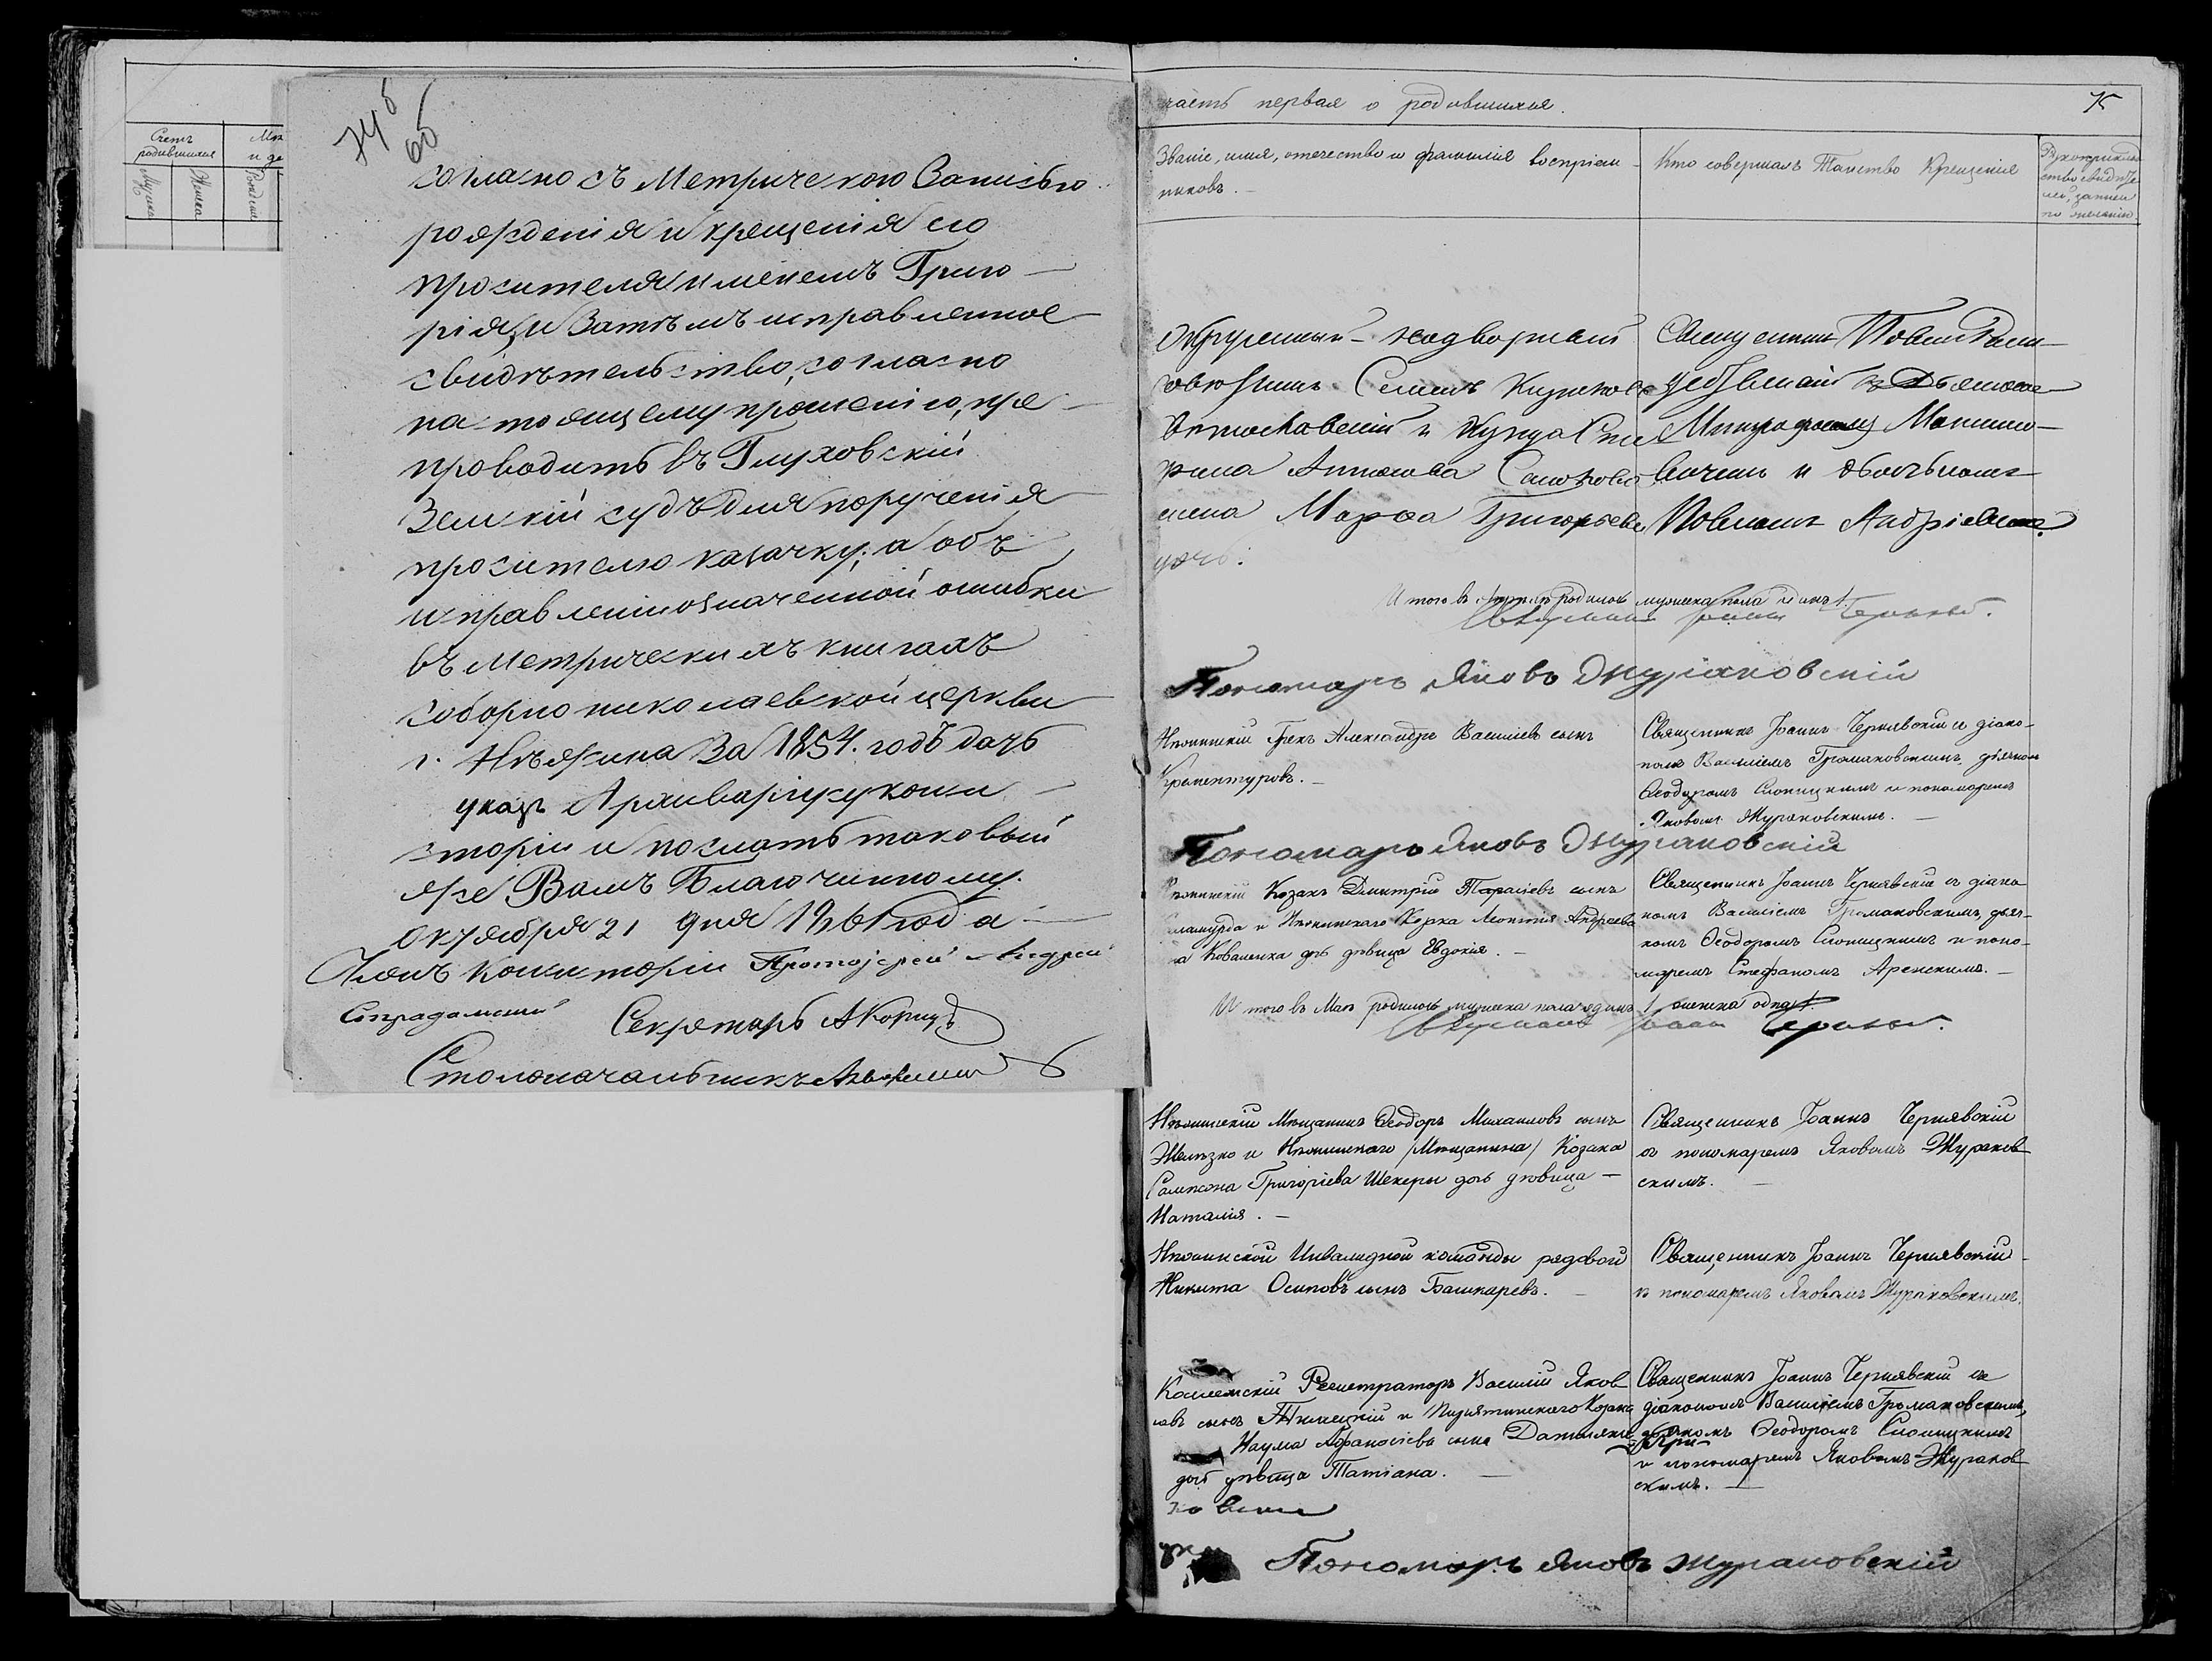 74б
об
Счетъ родившихся
Мужска
Женска
согласно съ Метрическою Записью
рожденія и крещенія его
просителя именемъ Григо-
рія, и Затѣмъ исправленное
свидѣтельство, согласно
настоящему прошенію, пре-
проводить въ Глуховскій
Земскій судъ для порученія
просителю казачку; а объ
исправленіи означенной ошибки
въ Метрическихъ книгахъ
соборно николаевской церкви
г. Нѣжина За 1854. годъ дать
указъ Архиваріусу конси
сторіи и послать таковый
же Вамъ Благочинному.
Октября 21 дня 1861 года
Членъ Консисторіи Протоіерей Андрей
Страдомскій
Секретарь А Корицъ
Столоначальникъ
часть первая о родившихся.
75
Званіе, имя, отечество и фамилія воспріем-
никовъ.
Кто совершалъ Таинство Крещенія
Рукоприклад
ство свидѣте
лей, записи
по желанію.
надворный
Семенъ
и Купца
Марфа Григорьева
дочь.
Священникъ
и
Итого въ родилось мужеска пола одинъ 1.
Священникъ Іоаннъ
Пономарь Яковъ Жураковскій
Нѣжинскій Грекъ Александръ Василіевъ сынъ
Крементуровъ.
Священникъ Іоаннъ Чернявскій съ діако-
номъ Василіемъ Громаковскимъ, дьячкомъ
Ѳеодоромъ Слоницкимъ и пономаремъ
Яковомъ Жураковскимъ.
Пономарь Яковъ Жураковскій
Нѣжинскій Козакъ Димитрій Тарасіевъ сынъ
и Нѣжинскаго Леонтія Андреева
Коваленка дочь дѣвица Евдокія.
Священникъ Іоаннъ Чернявскій съ діако
номъ Василіемъ Громаковскимъ, дьяч-
комъ Ѳеодоромъ Слоницкимъ и поно-
маремъ Стефаномъ Аренскимъ.
Итого въ Маѣ родилось мужеска пола одинъ 1, женска одна 1.
Священникъ Іоаннъ
Нѣжинскій Мѣщанинъ Ѳеодоръ Михаиловъ сынъ
Желѣзко и Нѣжинскаго /Мѣщанина/ Козака
Сампсона Григоріева Шекеры дочь дѣвица
Наталія.
Священникъ Іоаннъ Чернявскій
съ пономаремъ Яковомъ Жураков
скимъ.
Нѣжинской Инвалидной команды рядовой
Никита Осиповъ сынъ Башкаревъ.
Священникъ Іоаннъ Чернявскій
съ пономаремъ Яковомъ Жураковскимъ.
Коллежскій Регистраторъ Василій Яков
левъ сынъ и Пирятинскаго Козака
Наума Афанасіева сына
дочь дѣвица Татіана.
Священникъ Іоаннъ Чернявскій съ
діакономъ Василіемъ Громаковскимъ,
дьячкомъ Ѳеодоромъ Слоницкимъ
и пономаремъ Яковомъ Жураков
скимъ.
Пономарь Яковъ Жураковскій